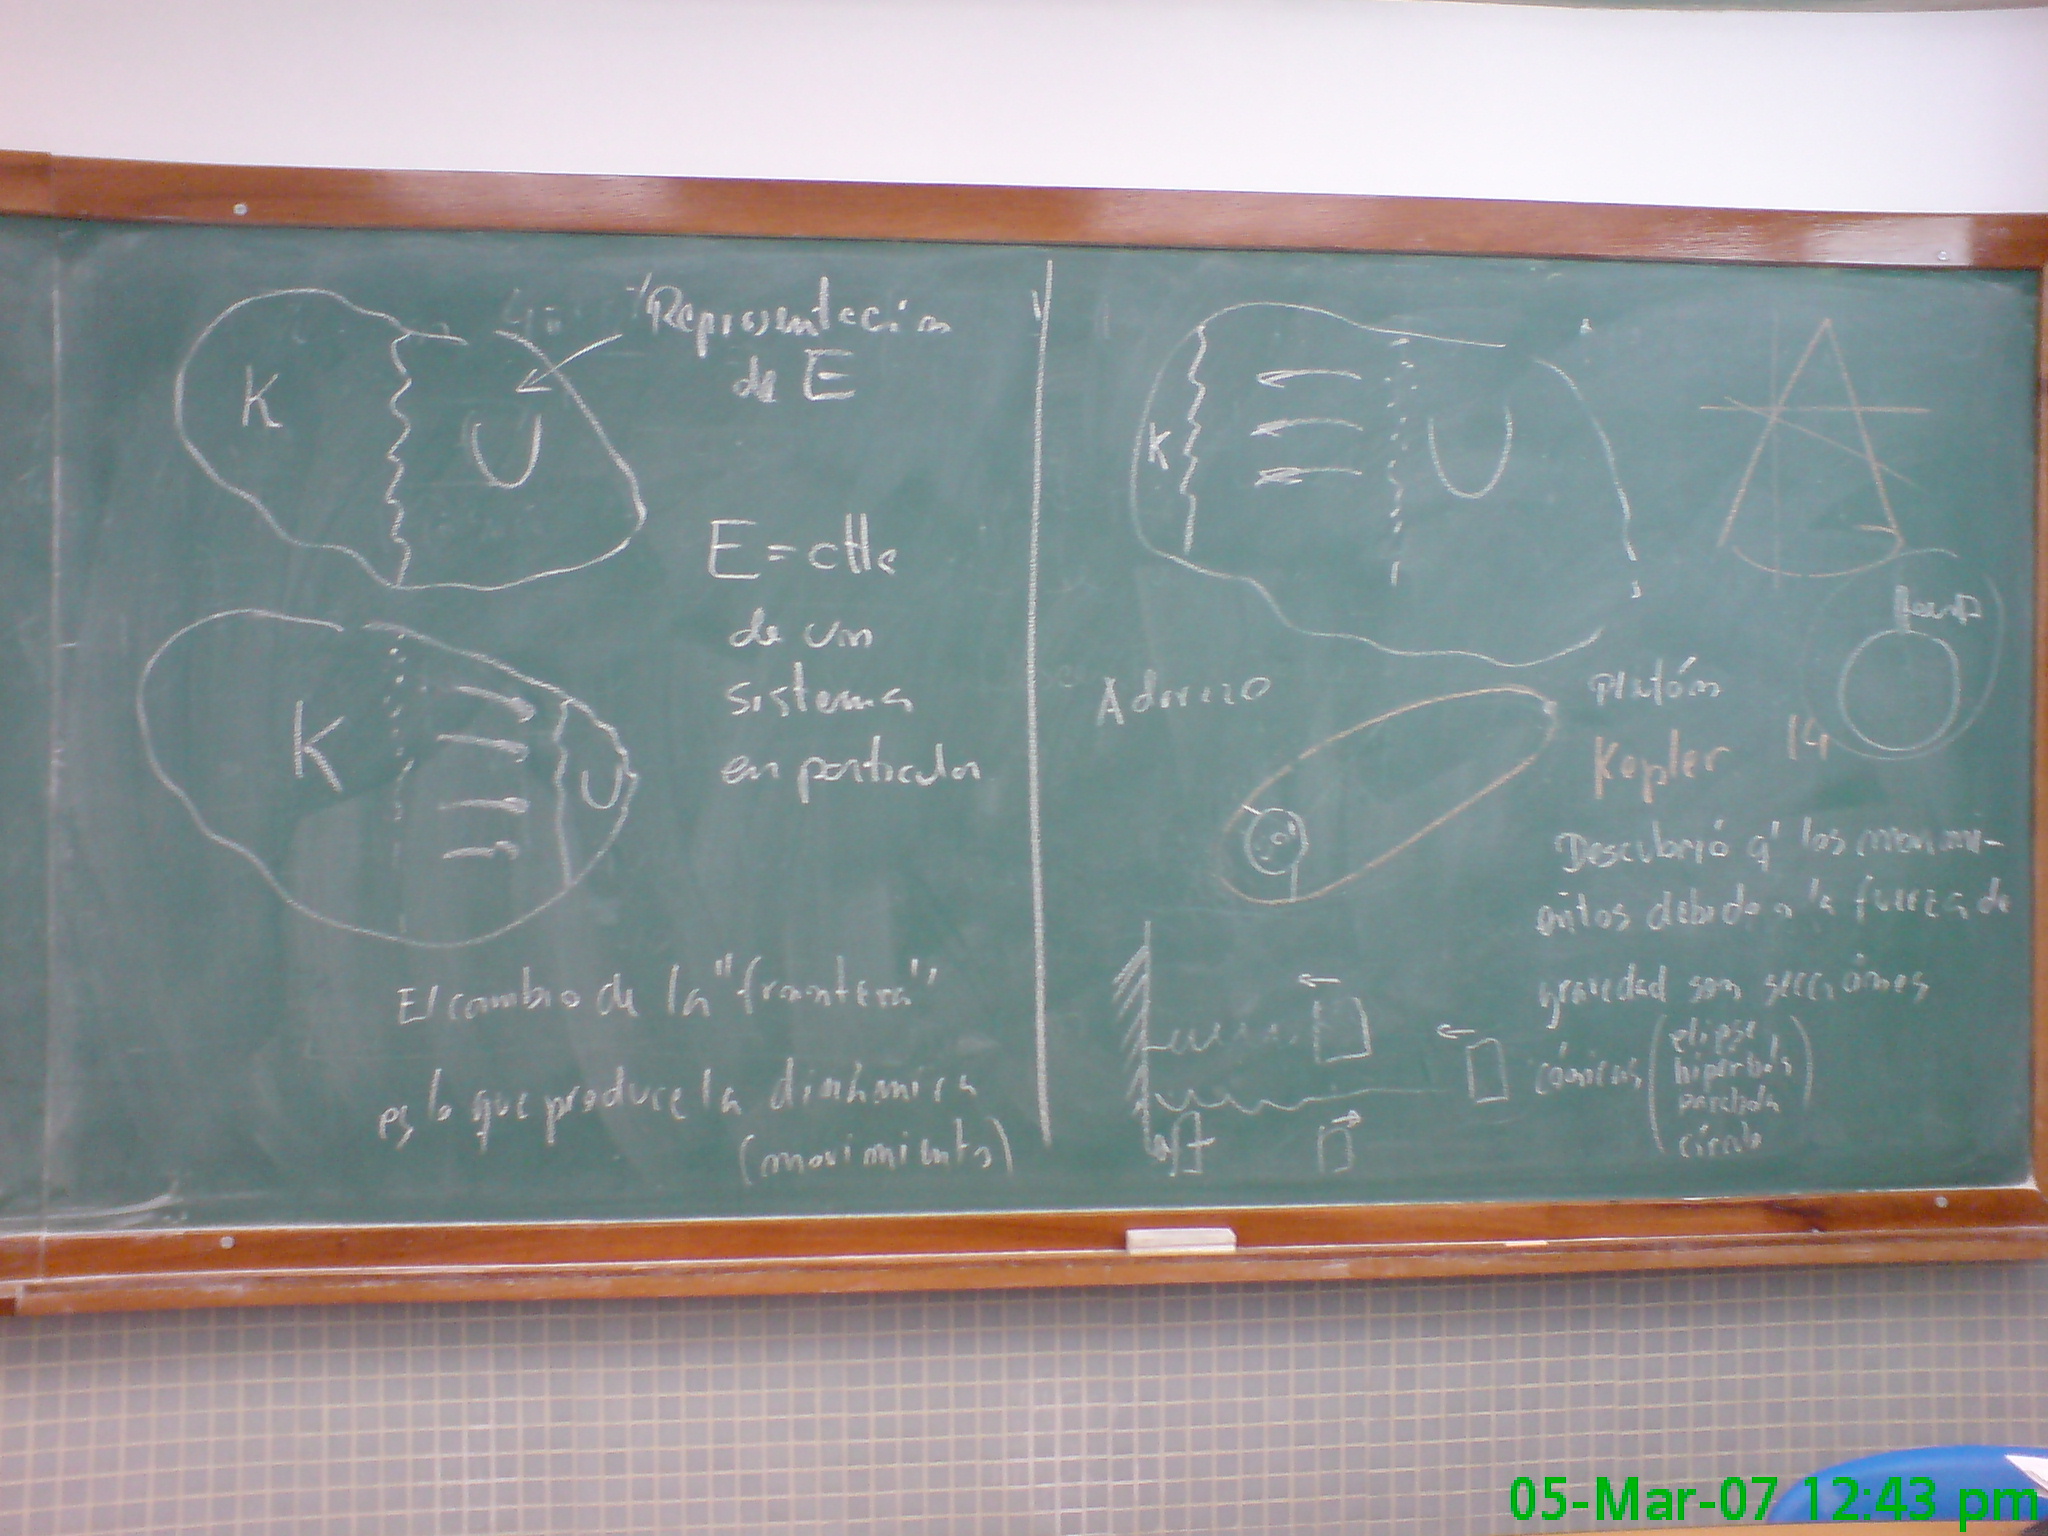 Representación
de E
K
U
E = ctte
de un
sistema
en particular
K
U
El cambio de la "frontera"
es lo que produce la dinámica
(movimiento)
K
U
Aderezo
Platón
Kepler
14
Descubrió q' los movimi-
entos debido a la fuerza de
gravedad son secciónes
cónicas (elipse
hiperbola
parabola
círculo)
05-Mar-07 12:43 pm